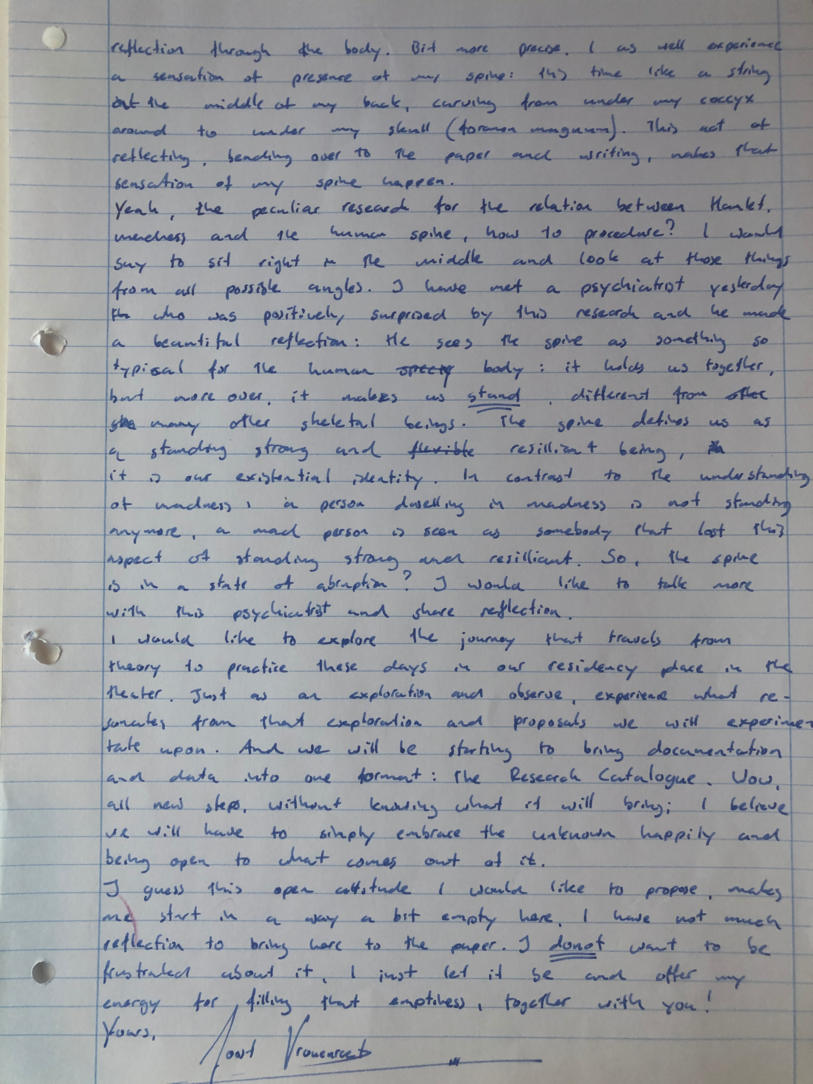 reflection through the body. Bit more precise. I as well experience
a sensation of presence of my spine: this time like a string
the middle of my back, curving from under my coccyx
around to under my skull (foramen magnum). This act of
reflecting, bending over to the paper and writing, makes that
sensation of my spine happen.
Yeah, the peculiar research for the relation between Hamlet,
madness and the human spine, how to procedure? I would
say to sit right in the middle and look at those things
from all possible angles. I have met a psychiatrist yesterday
who was positively surprised by this research and he made
a beautiful reflection: He sees the spine as something so
typical for the human body: it holds us together,
but more over, it makes us stand, different from
many other skeletal beings. The spine defines us as
a standing strong and flexible resillient being,
it is our existential identity. In contrast to the understanding
of madness, a person dwelling in madness is not standing
anymore, a mad person is seen as somebody that lost this
aspect of standing strong and resilliant. So, the spine
is in a state of abruption? I would like to talk more
with this psychiatrist and share reflection.
I would like to explore the journey that travels from
theory to practice these days in our residency place in the
theater. Just as an exploration and observe, experience what re-
sonates from that exploration and proposals we will experimen
tate upon. And we will be starting to bring documentation
and data into one format: The Research Catalogue. Wow,
all new steps, without knowing what it will bring; I believe
we will have to simply embrace the unknown happily and
being open to what comes out of it.
I guess this open attitude I would like to propose, makes
me start in a way a bit empty here. I have not much
reflection to bring here to the paper. I donot want to be
frustrated about it, I just let it be and offer my
energy for filling that emptiness, together with you!
Yours,
Joost Vrouenraets